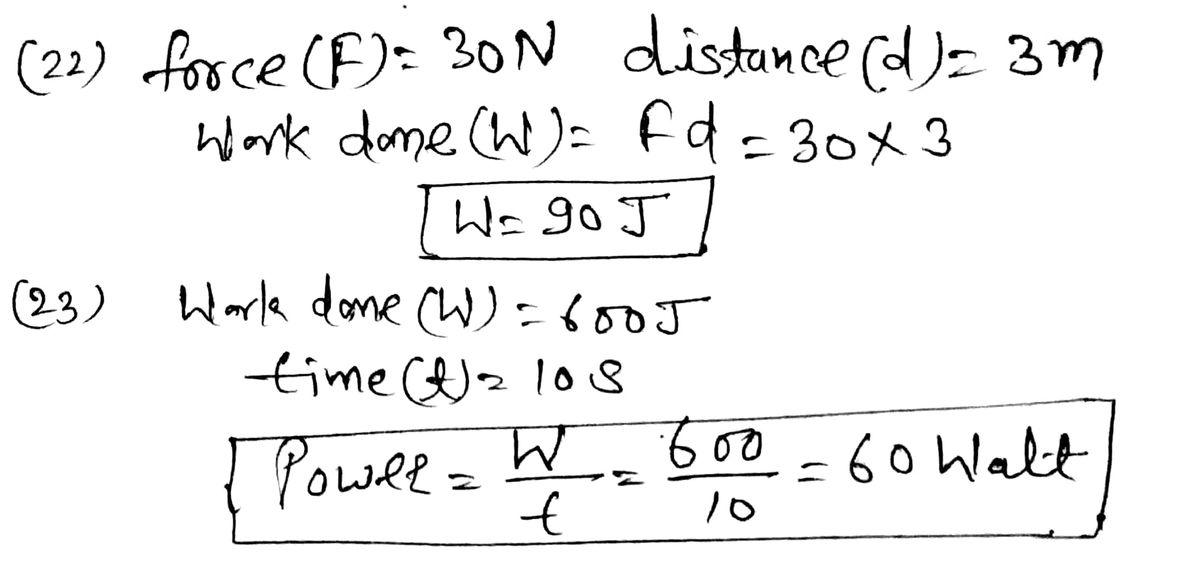 (22) force (F) = 30N distance (d) = 3m
Work done (W) = Fd = 30 × 3
W = 90 J
(23) Work done (W) = 600J
time (t) = 10 S
Power = W/t = 600/10 = 60 Watt